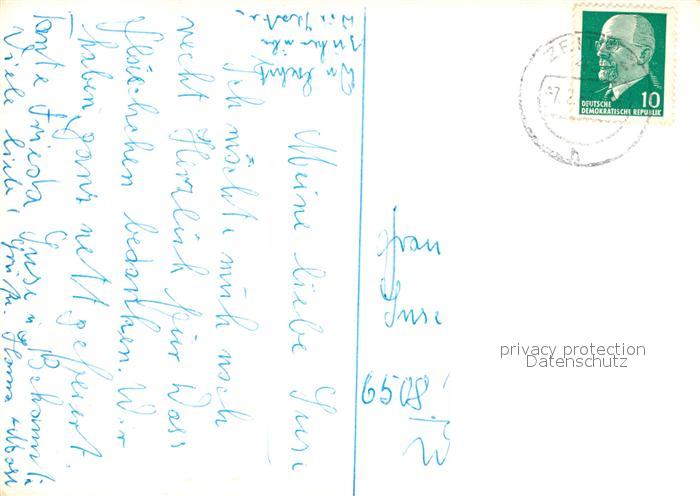 Meine liebe Suse
Ich möchte mich noch
recht Herzlich für Dass
Fläschchen bedanken. Wir
haben ganz nett gefeiert.
Tante Frieda Suse u. Bekannte
Viele liebe Grüße
Frau
Suse
6508
ZE
7.2
DEUTSCHE
DEMOKRATISCHE REPUBLIK
10
h
privacy protection
Datenschutz